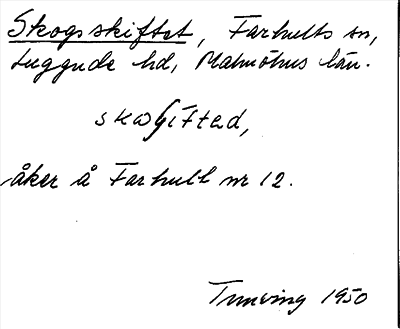 Skogsskiftet, Farhults sn,
Luggude hd, Malmöhus län.
skoɡʃiftəd,
åker å Farhult nr 12.
Tuneving 1950